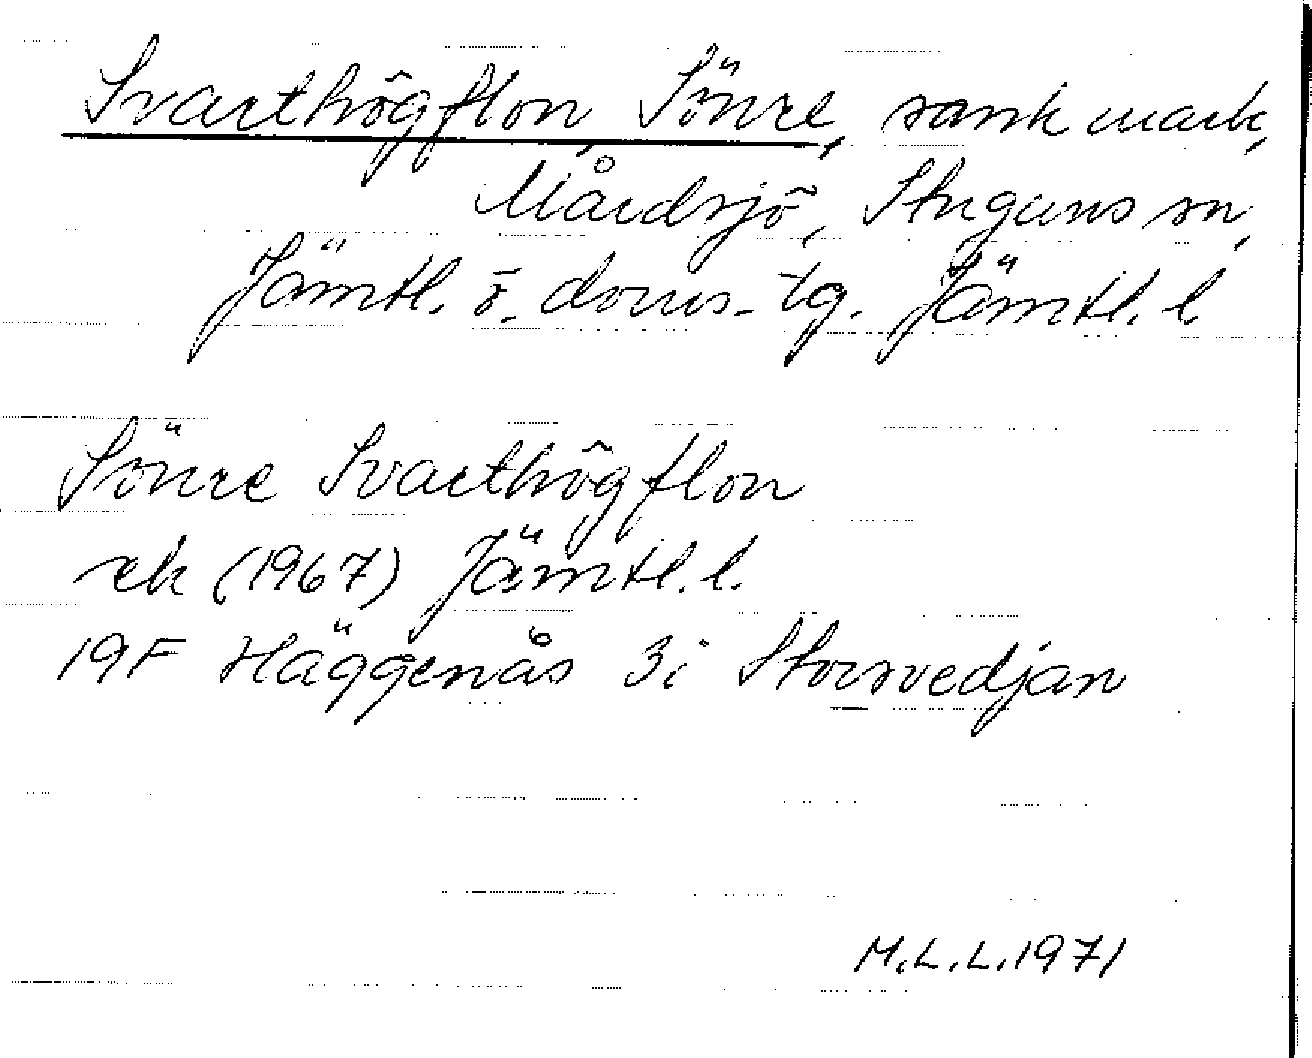 Svarthögflon, Sönre, sank mark,
Mårdsjö, Stuguns sn,
Jämtl. ö. doms. tg. Jämtl. l
Sönre Svarthögflon
ek (1967) Jämtl. l.
19F Häggenås 3i Storsvedjan
M.L.L. 1971